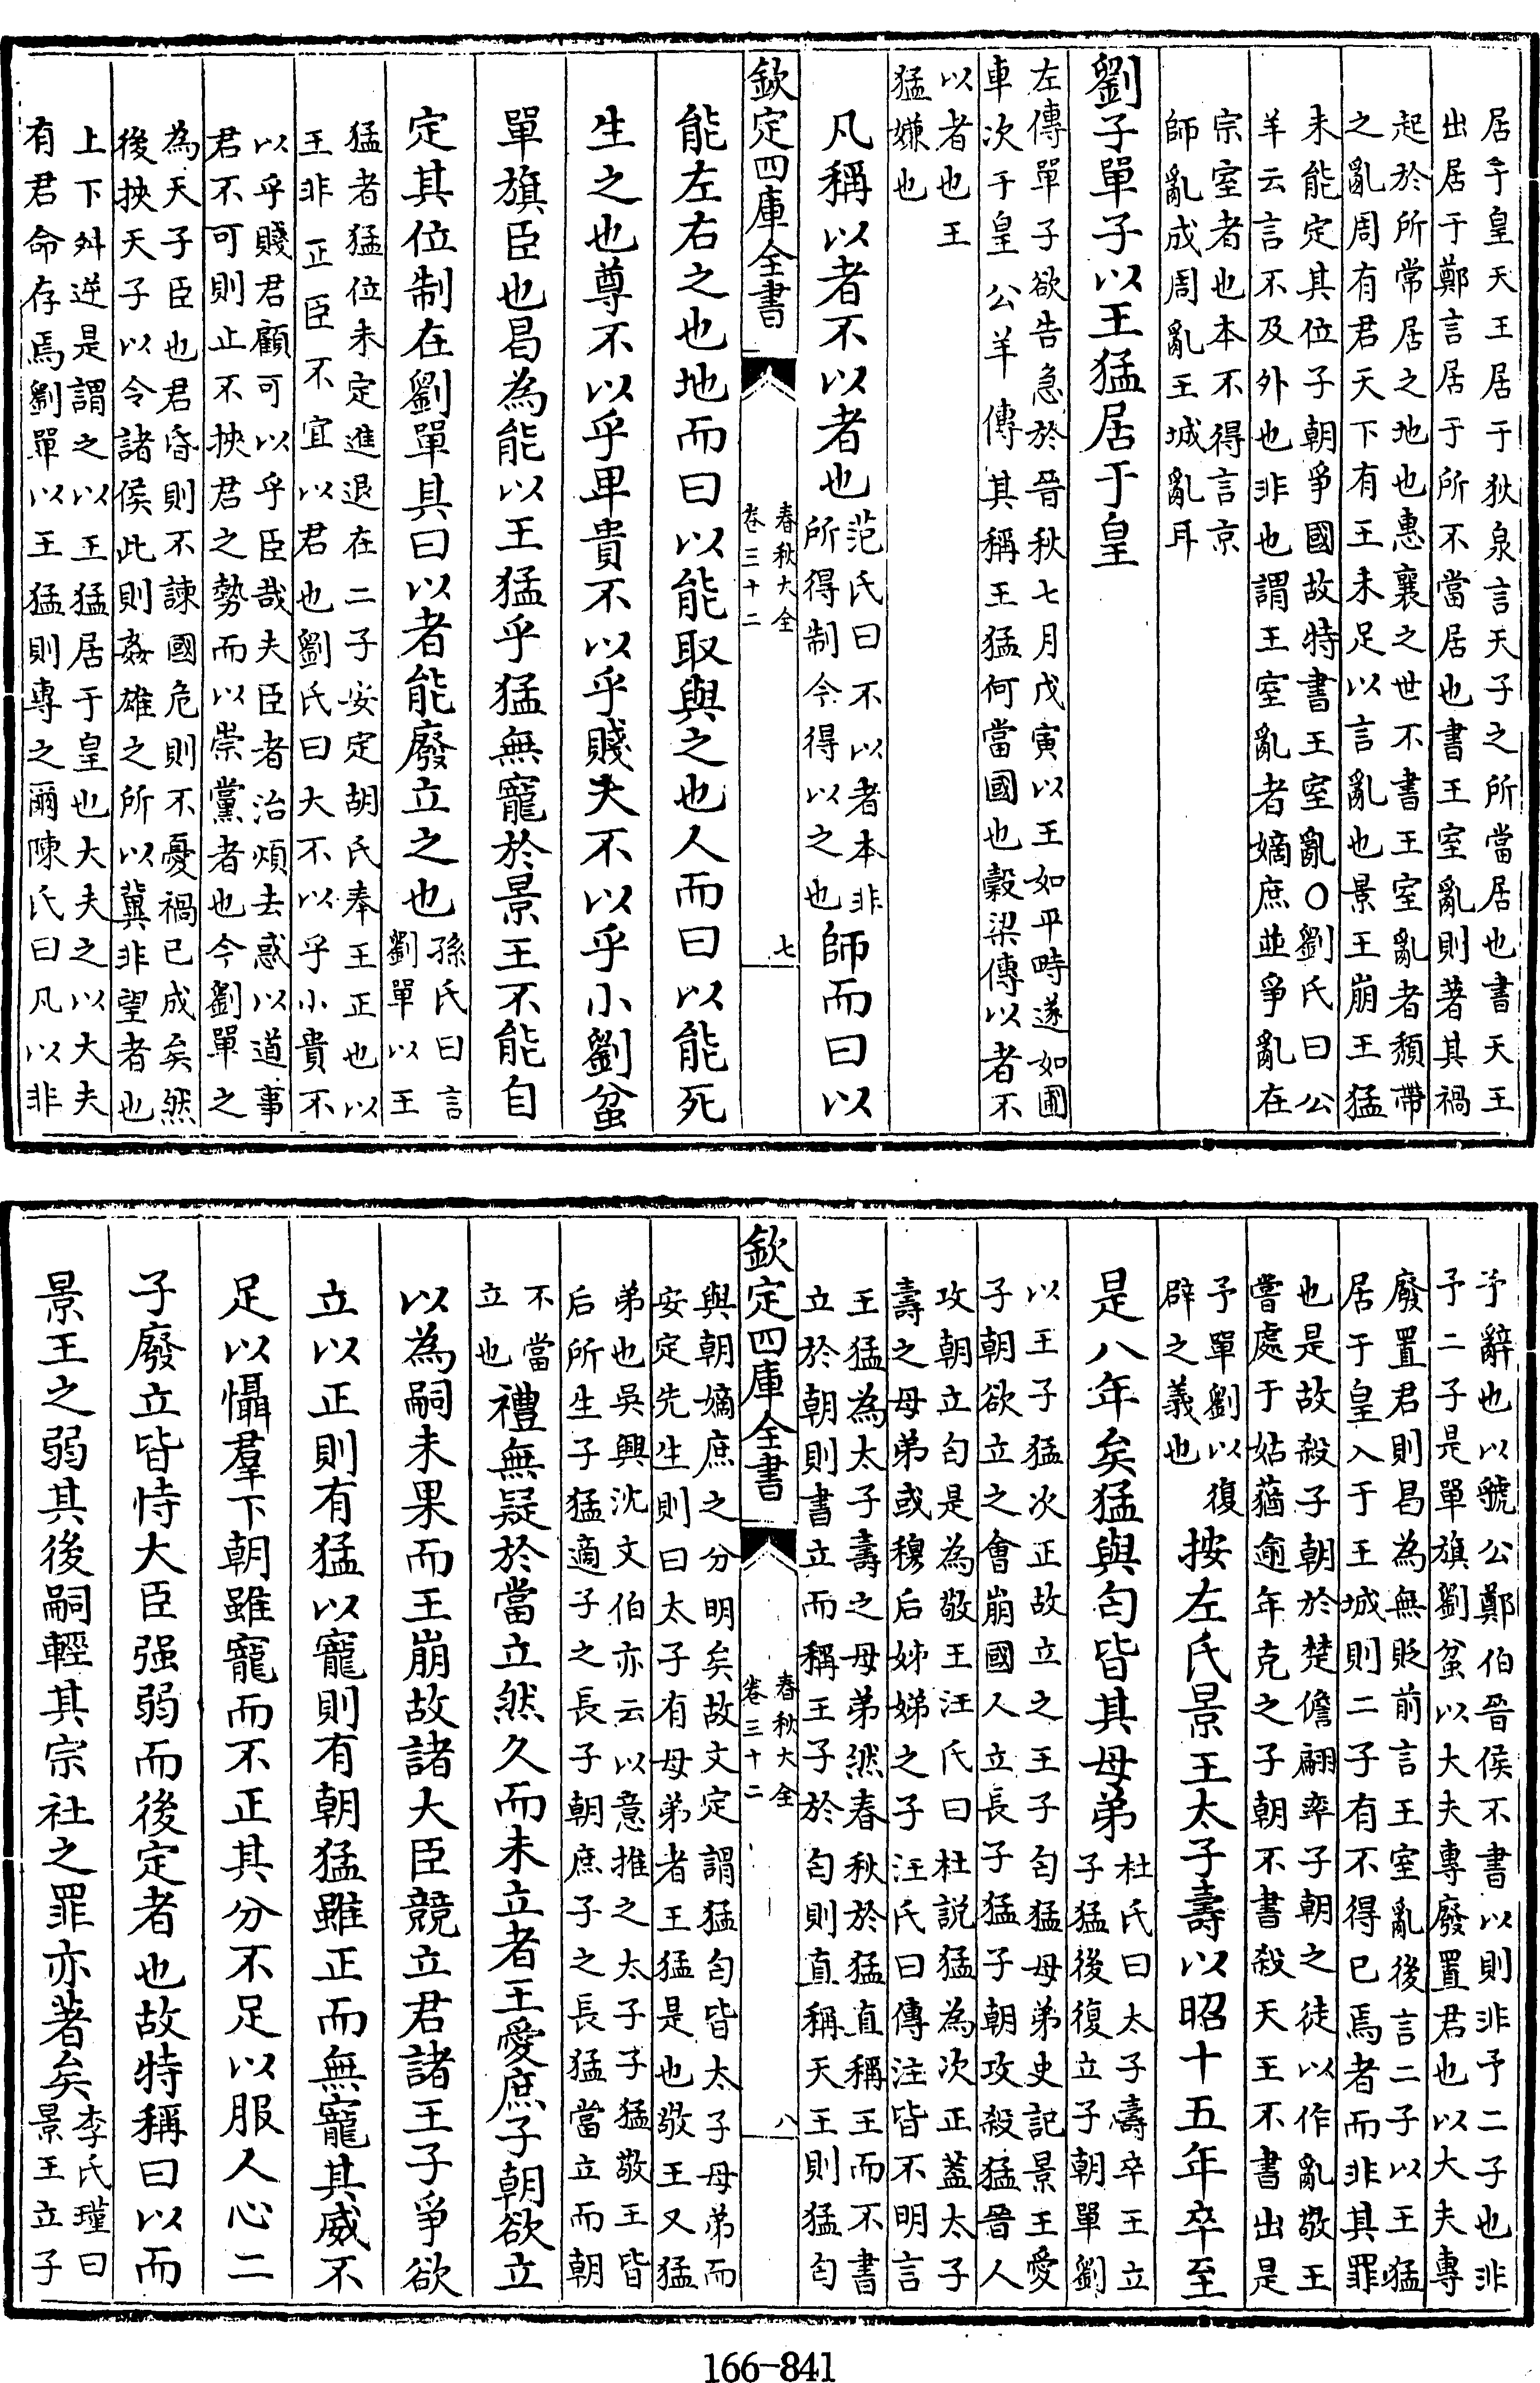 居于皇天王居于狄泉言天子之所當居也書天王
出居于鄭言居于所不當居也書王室亂則著其禍
起於所常居之地也惠襄之世不書王室亂者頽帶
之亂周有君天下有王未足以言亂也景王崩王猛
未能定其位子朝爭國故特書王室亂○劉氏曰公
羊云言不及外也非也謂王室亂者嫡庶並爭亂在
宗室者也本不得言京
師亂成周亂王城亂耳
劉子單子以王猛居于皇
左傳單子欲告急於晉秋七月戊寅以王如平畤遂如圃
車次于皇 公羊傳其稱王猛何當國也穀梁傳以者不
以者也王
猛嫌也
凡稱以者不以者也
范氏曰不以者本非
所得制今得以之也
師而曰以
欽定四庫全書
春秋大全
卷三十二
七
能左右之也地而曰以能取與之也人而曰以能死
生之也尊不以乎卑貴不以乎賤大不以乎小劉蚠
單旗臣也曷為能以王猛乎猛無寵於景王不能自
定其位制在劉單其曰以者能廢立之也
孫氏曰言
劉單以王
猛者猛位未定進退在二子安定胡氏奉王正也以
王非正臣不宜以君也劉氏曰大不以乎小貴不
以乎賤君顧可以乎臣哉夫臣者治煩去惑以道事
君不可則止不挾君之勢而以崇黨者也今劉單之
為天子臣也君昏則不諫國危則不憂禍已成矣然
後挾天子以令諸侯此則姦雄之所以冀非望者也
上下舛逆是謂之以王猛居于皇也大夫之以大夫
有君命存焉劉單以王猛則專之爾陳氏曰凡以非
予辭也以虢公鄭伯晉侯不書以則非予二子也非
予二子是單旗劉蚠以大夫專廢置君也以大夫專
廢置君則曷為無貶前言王室亂後言二子以王猛
居于皇入于王城則二子有不得已焉者而非其罪
也是故殺子朝於楚儋翩率子朝之徒以作亂敬王
嘗處于姑蕕逾年克之子朝不書殺天王不書出是
予單劉以復
辟之義也
按左氏景王太子壽以昭十五年卒至
是八年矣猛與匄皆其母弟
杜氏曰太子壽卒王立
子猛後復立子朝單劉
以王子猛次正故立之王子匄猛母弟史記景王愛
子朝欲立之會崩國人立長子猛子朝攻殺猛晉人
攻朝立匄是為敬王汪氏曰杜説猛為次正蓋太子
壽之母弟或穆后姊娣之子汪氏曰傳注皆不明言
王猛為太子壽之母弟然春秋於猛直稱王而不書
立於朝則書立而稱王子於匄則直稱天王則猛匄
欽定四庫全書
春秋大全
卷三十二
八
與朝嫡庶之分明矣故文定謂猛匄皆太子母弟而
安定先生則曰太子有母弟者王猛是也敬王又猛
弟也吳興沈文伯亦云以意推之太子子猛敬王皆
后所生子猛適子之長子朝庶子之長猛當立而朝
不當
立也
禮無疑於當立然久而未立者王愛庶子朝欲立
以為嗣未果而王崩故諸大臣競立君諸王子爭欲
立以正則有猛以寵則有朝猛雖正而無寵其威不
足以懾羣下朝雖寵而不正其分不足以服人心二
子廢立皆恃大臣强弱而後定者也故特稱曰以而
景王之弱其後嗣輕其宗社之罪亦著矣
李氏瑾曰
景王立子
166-841